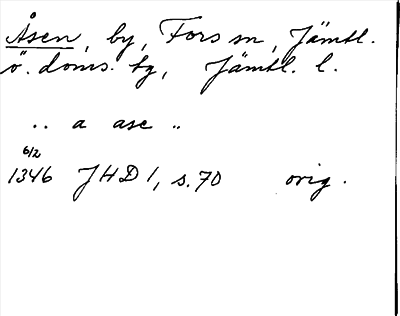 Åsen, by, Fors sn, Jämtl.
ö. doms. tg, Jämtl. l.
.. a ase ..
6/2
1346 JHD 1, s. 70 orig.